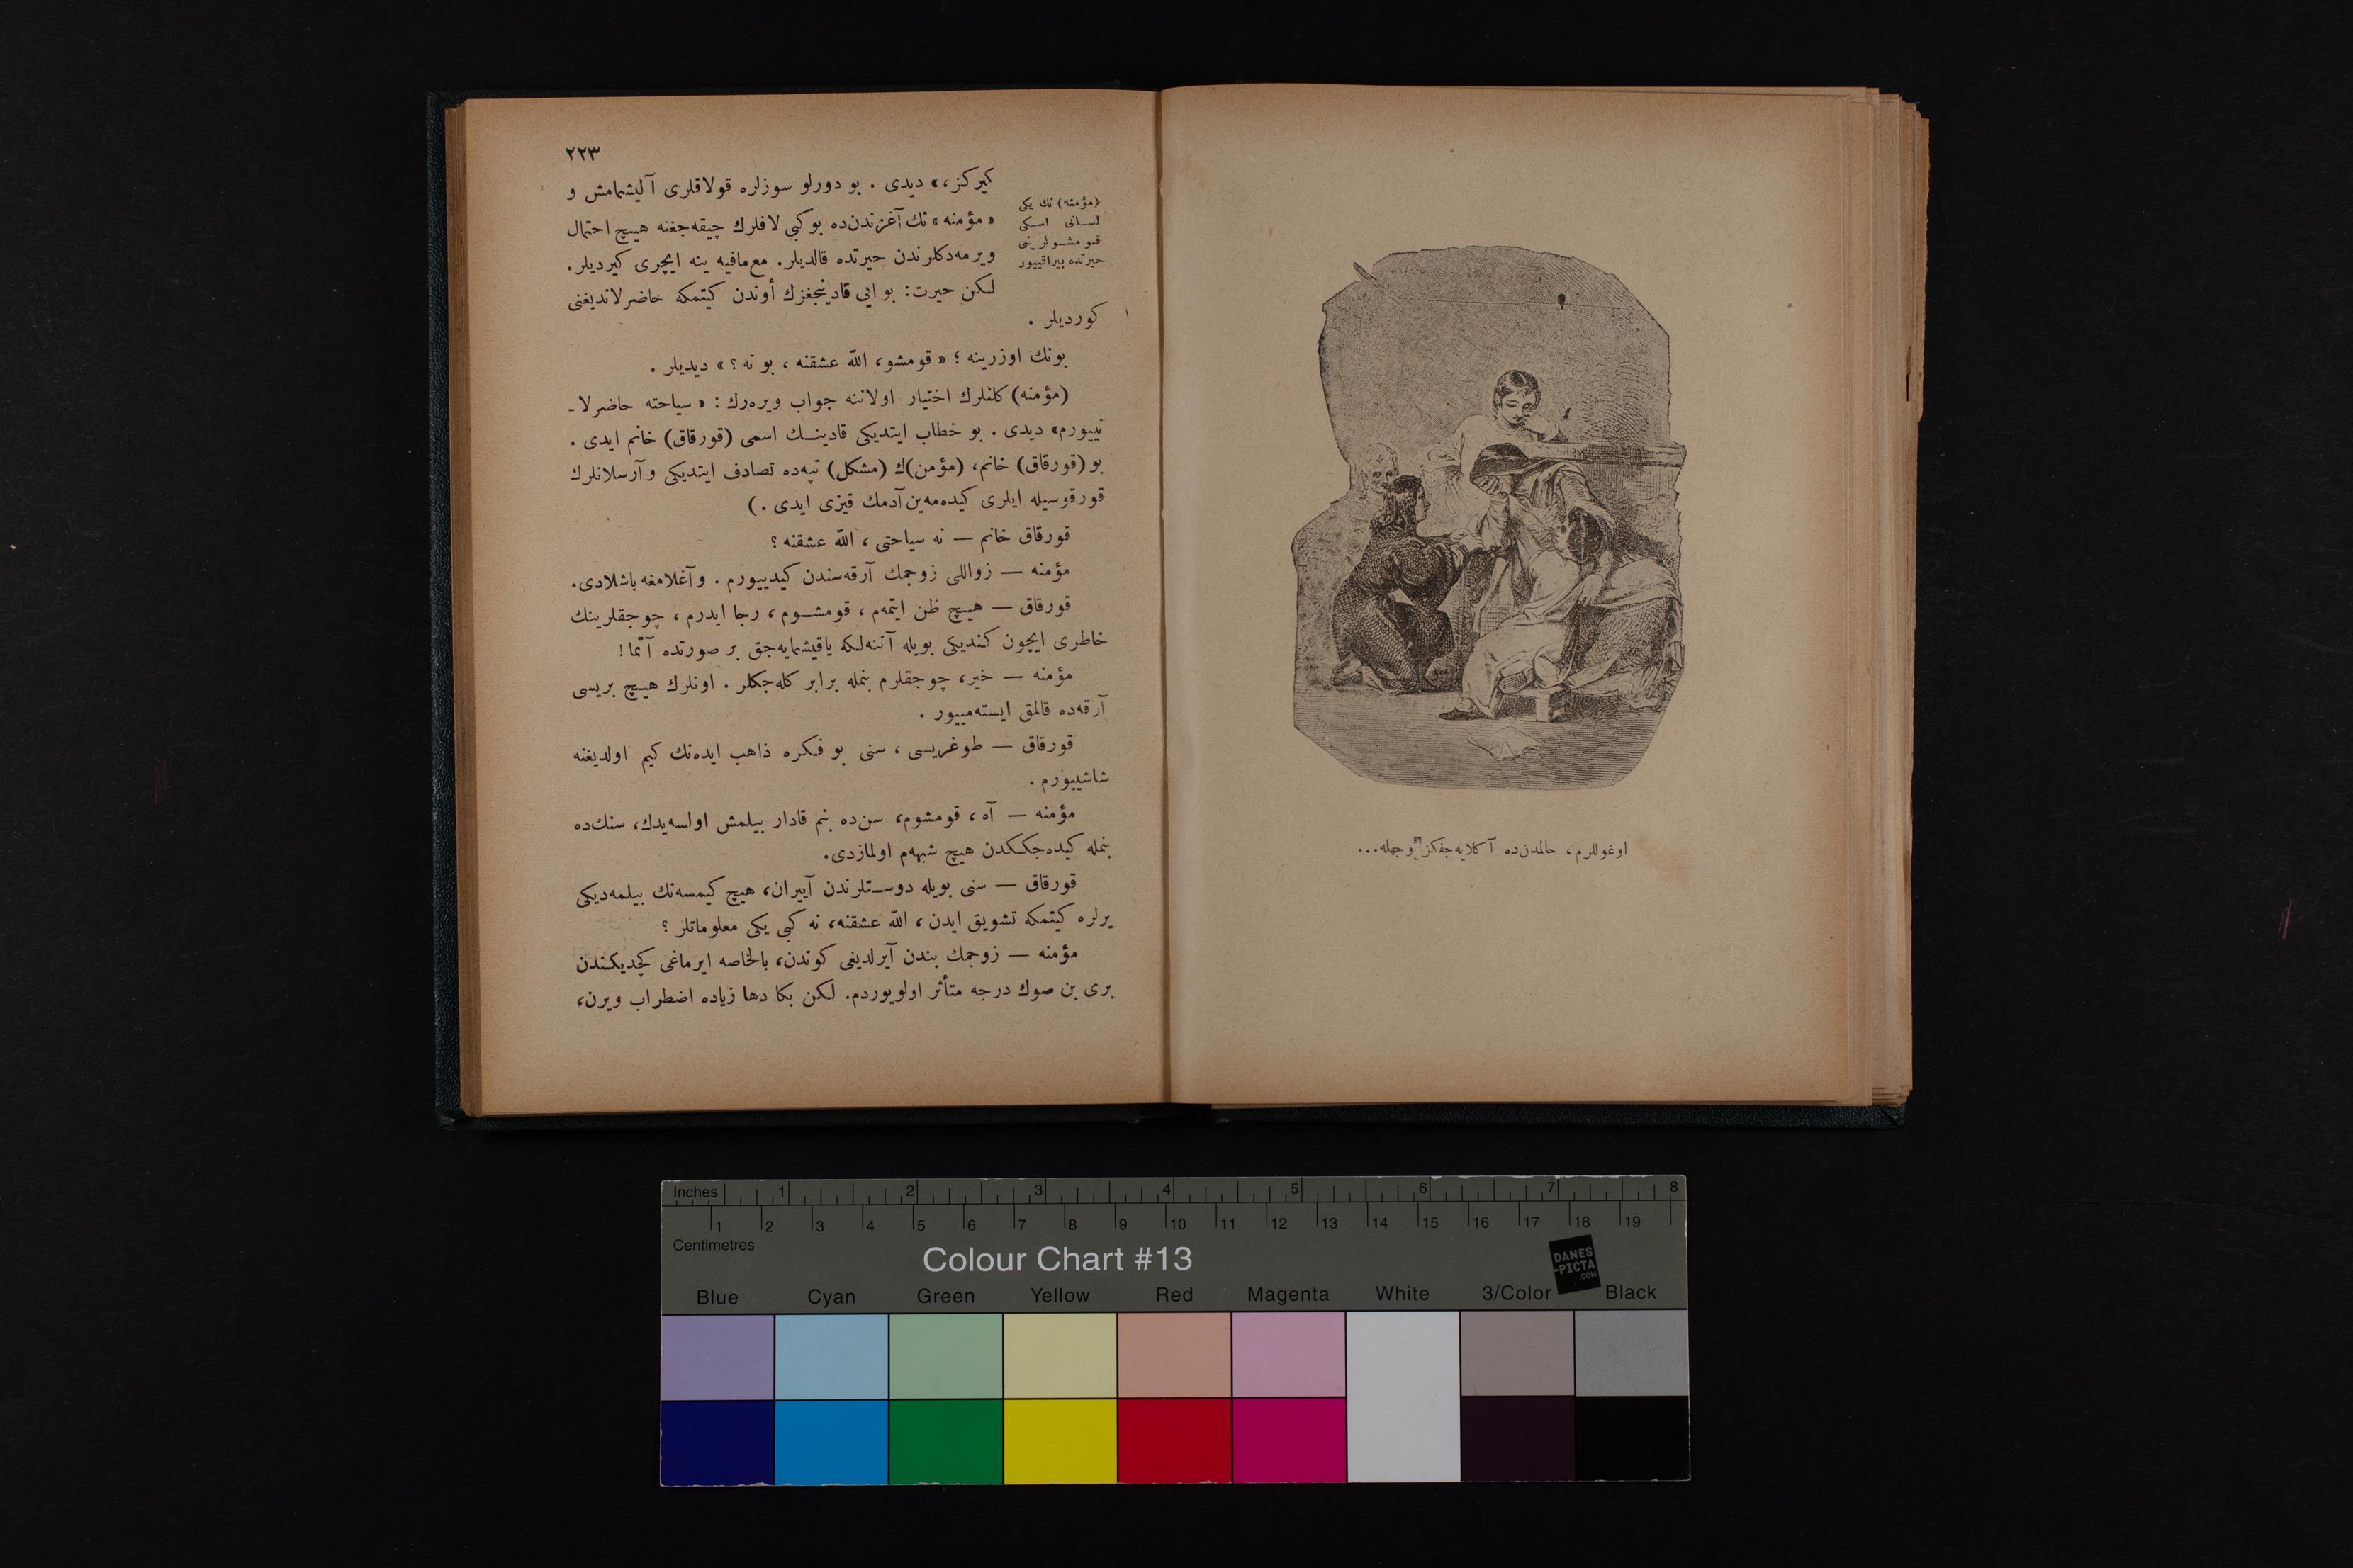 اوغوللرم، حالمدن‌ده آكلایه‌جغكز وجهله...
٢٢٣
كيركز،» ديدى . بو دورلو سوزلره قولاقلرى آليشمامش و
« مؤمنه » نك آغزندن‌ده بوكبى لافلرك چيقه‌جغنه هيچ احتمال
ويرمه‌دكلرندن حيرتده قالديلر. مع‌مافيه ينه ايچرى كيرديلر.
لكن حيرت: بو ايى قادينجغزك أوندن كيتمكه حاضرلانديغنى
كورديلر .
(مؤمنه) نك يكى
لسانى اسكى
قومشولرينى
حيرتده بيراقييور
بونك اوزرينه ؛ « قومشو، الله عشقنه ، بو نه ؟ » ديديلر .
(مؤمنه) كلنلرك اختيار اولاننه جواب ويره‌رك : « سياحته حاضرلا-
نييورم» ديدى . بو خطاب ايتديكى قادينك اسمى (قورقاق) خانم ايدى .
بو (قورقاق) خانم، (مؤمن)ك (مشكل) تپه‌ده تصادف ايتديكى وآرسلانلرك
قورقوسيله ايلرى كيده‌مه‌ين آدمك قيزى ايدى .)
قورقاق خانم — نه سياحتى ، الله عشقنه ؟
مؤمنه — زواللى زوجمك آرقه‌سندن كيدييورم . وآغلامغه باشلادى.
قورقاق — هيچ ظن ايتمه‌م ، قومشوم ، رجا ايدرم ، چوجقلرينك
خاطرى ايچون كنديكى بويله آننه‌لكه ياقيشمايه‌جق بر صورتده آتما !
مؤمنه — خير، چوجقلرم بنمله برابر كله‌جكلر . اونلرك هيچ بريسى
آرقه‌ده قالمق ايسته‌مييور .
قورقاق — طوغريسى ، سنى بو فكره ذاهب ايده‌نك كيم اولديغنه
شاشييورم .
مؤمنه — آه ، قومشوم، سن‌ده بنم قادار بيلمش اولسه‌يدك، سنك‌ده
بنمله كيده‌جككدن هيچ شبهه‌م اولمازدى.
قورقاق — سنى بويله دوستلرندن آييران، هيچ كيمسه‌نك بيلمه‌ديكى
يرلره كيتمكه تشويق ايدن ، الله عشقنه، نه كبى يكى معلوماتلر ؟
مؤمنه — زوجمك بندن آيرلديغى كوندن، بالخاصه ايرماغى كچديكندن
برى بن صوك درجه متأثر اولويوردم. لكن بكا دها زياده اضطراب ويرن،
Inches 1 2 3 4 5 6 7 8
1 2 3 4 5 6 7 8 9 10 11 12 13 14 15 16 17 18 19
Centimetres
Colour Chart #13
DANES
-PICTA
.COM
Blue Cyan Green Yellow Red Magenta White 3/Color Black